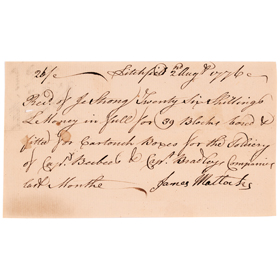 26/ Litchfield 2d Augt 1776
Recd. of Jos Strong Twenty Six Shillings
L Money in full for 39 Blocks bored &
fitted for Cartouch Boxes for the Soldiery
of Capt. Beebes & Capt. Bradleys Companies
last Monthe James Mattocks